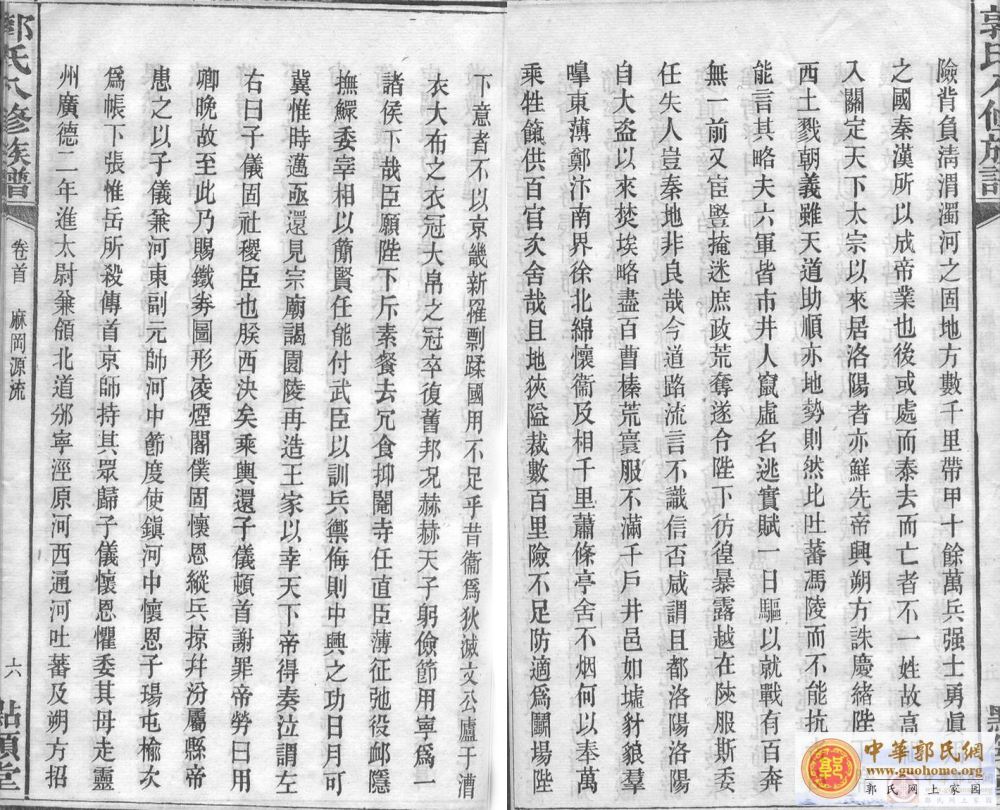 郭氏八修族譜
險背負清渭濁河之固地方數千里帶甲十餘萬兵强士勇眞
之國秦漢所以成帝業也後或處而泰去而亡者不一姓故高
入關定天下太宗以來居洛陽者亦鮮先帝興朔方誅慶緒陛
西土戮朝義雖天道助順亦地勢則然比吐蕃馮陵而不能抗
能言其略夫六軍皆市井人竄虛名逃實賦一日驅以就戰有百奔
無一前又宦豎掩迷庶政荒奪遂令陛下彷徨暴露越在陝服斯委
任失人豈秦地非良哉今道路流言不識信否咸謂且都洛陽洛陽
自大盜以來焚埃略盡百曹榛荒寰服不滿千戶井邑如墟豺狼羣
嘷東薄鄭汴南界徐北綿懷衞及相千里蕭條亭舍不烟何以奉萬
乘牲餼供百官次舍哉且地狹隘裁數百里險不足防適爲鬭場陛
下意者不以京畿新罹剽蹂國用不足乎昔衞爲狄滅文公廬于漕
衣大布之衣冠大帛之冠卒復舊邦况赫赫天子躬儉節用寧爲一
諸侯下哉臣願陛下斥素餐去冗食抑閹寺任直臣薄征弛役卹隱
撫鰥委宰相以簡賢任能付武臣以訓兵禦侮則中興之功日月可
冀惟時邁亟還見宗廟謁園陵再造王家以幸天下帝得奏泣謂左
右曰子儀固社稷臣也朕西決矣乘輿還子儀頓首謝罪帝勞曰用
卿晚故至此乃賜鐵券圖形凌煙閣僕固懷恩縱兵掠幷汾屬縣帝
患之以子儀兼河東副元帥河中節度使鎭河中懷恩子瑒屯榆次
爲帳下張惟岳所殺傳首京師持其眾歸子儀懷恩懼委其母走靈
州廣德二年進太尉兼領北道邠寧涇原河西通河吐蕃及朔方招
郭氏八修族譜
卷首
麻岡源流
六
點頭堂
中華郭氏網
www.guohome.org
郭氏網上家園